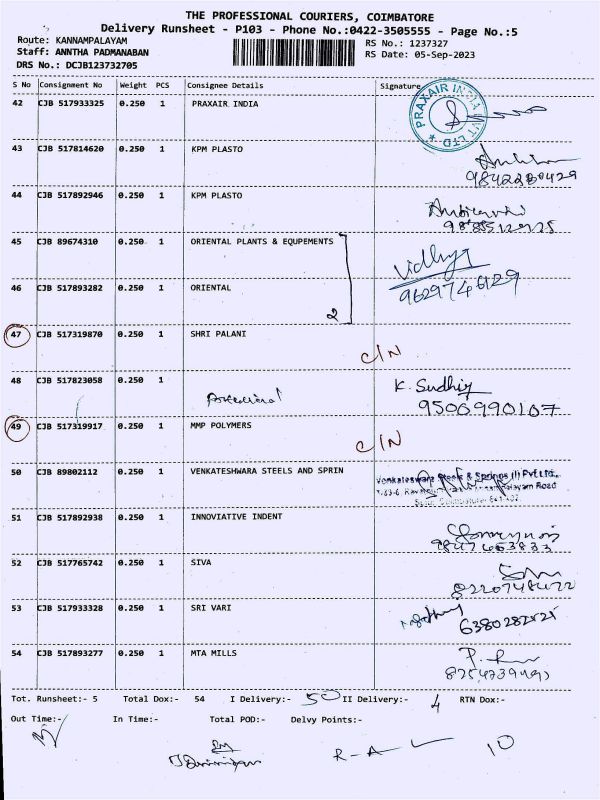 THE PROFESSIONAL COURIERS, COIMBATORE
Delivery Runsheet - P103 - Phone No.:0422-3505555 - Page No.:5
Route: KANNAMPALAYAM
RS No.: 1237327
Staff: ANNTHA PADMANABAN
RS Date: 05-Sep-2023
DRS No.: DCJB123732705
S No Consignment No Weight PCS Consignee Details Signature
42 CJB 517933325 0.250 1 PRAXAIR INDIA
PRAXAIR INDIA PVT LTD
43 CJB 517814620 0.250 1 KPM PLASTO
44 CJB 517892946 0.250 1 KPM PLASTO
45 CJB 89674310 0.250 1 ORIENTAL PLANTS & EQUPEMENTS
Vidhya
46 CJB 517893282 0.250 1 ORIENTAL
9629746129
2
47 CJB 517319870 0.250 1 SHRI PALANI
C/N
48 CJB 517823058 0.250 1
K. Sudhiy
9506990107
49 CJB 517319917 0.250 1 MMP POLYMERS
C/N
50 CJB 89802112 0.250 1 VENKATESHWARA STEELS AND SPRIN
Venkateswara Steels & Springs (I) Pvt Ltd.,
51 CJB 517892938 0.250 1 INNOVIATIVE INDENT
9847463833
52 CJB 517765742 0.250 1 SIVA
53 CJB 517933328 0.250 1 SRI VARI
54 CJB 517893277 0.250 1 MTA MILLS
Tot. Runsheet:- 5 Total Dox:- 54 I Delivery:- 50 II Delivery:- 4 RTN Dox:-
Out Time:- In Time:- Total POD:- Delvy Points:-
R - A L 10